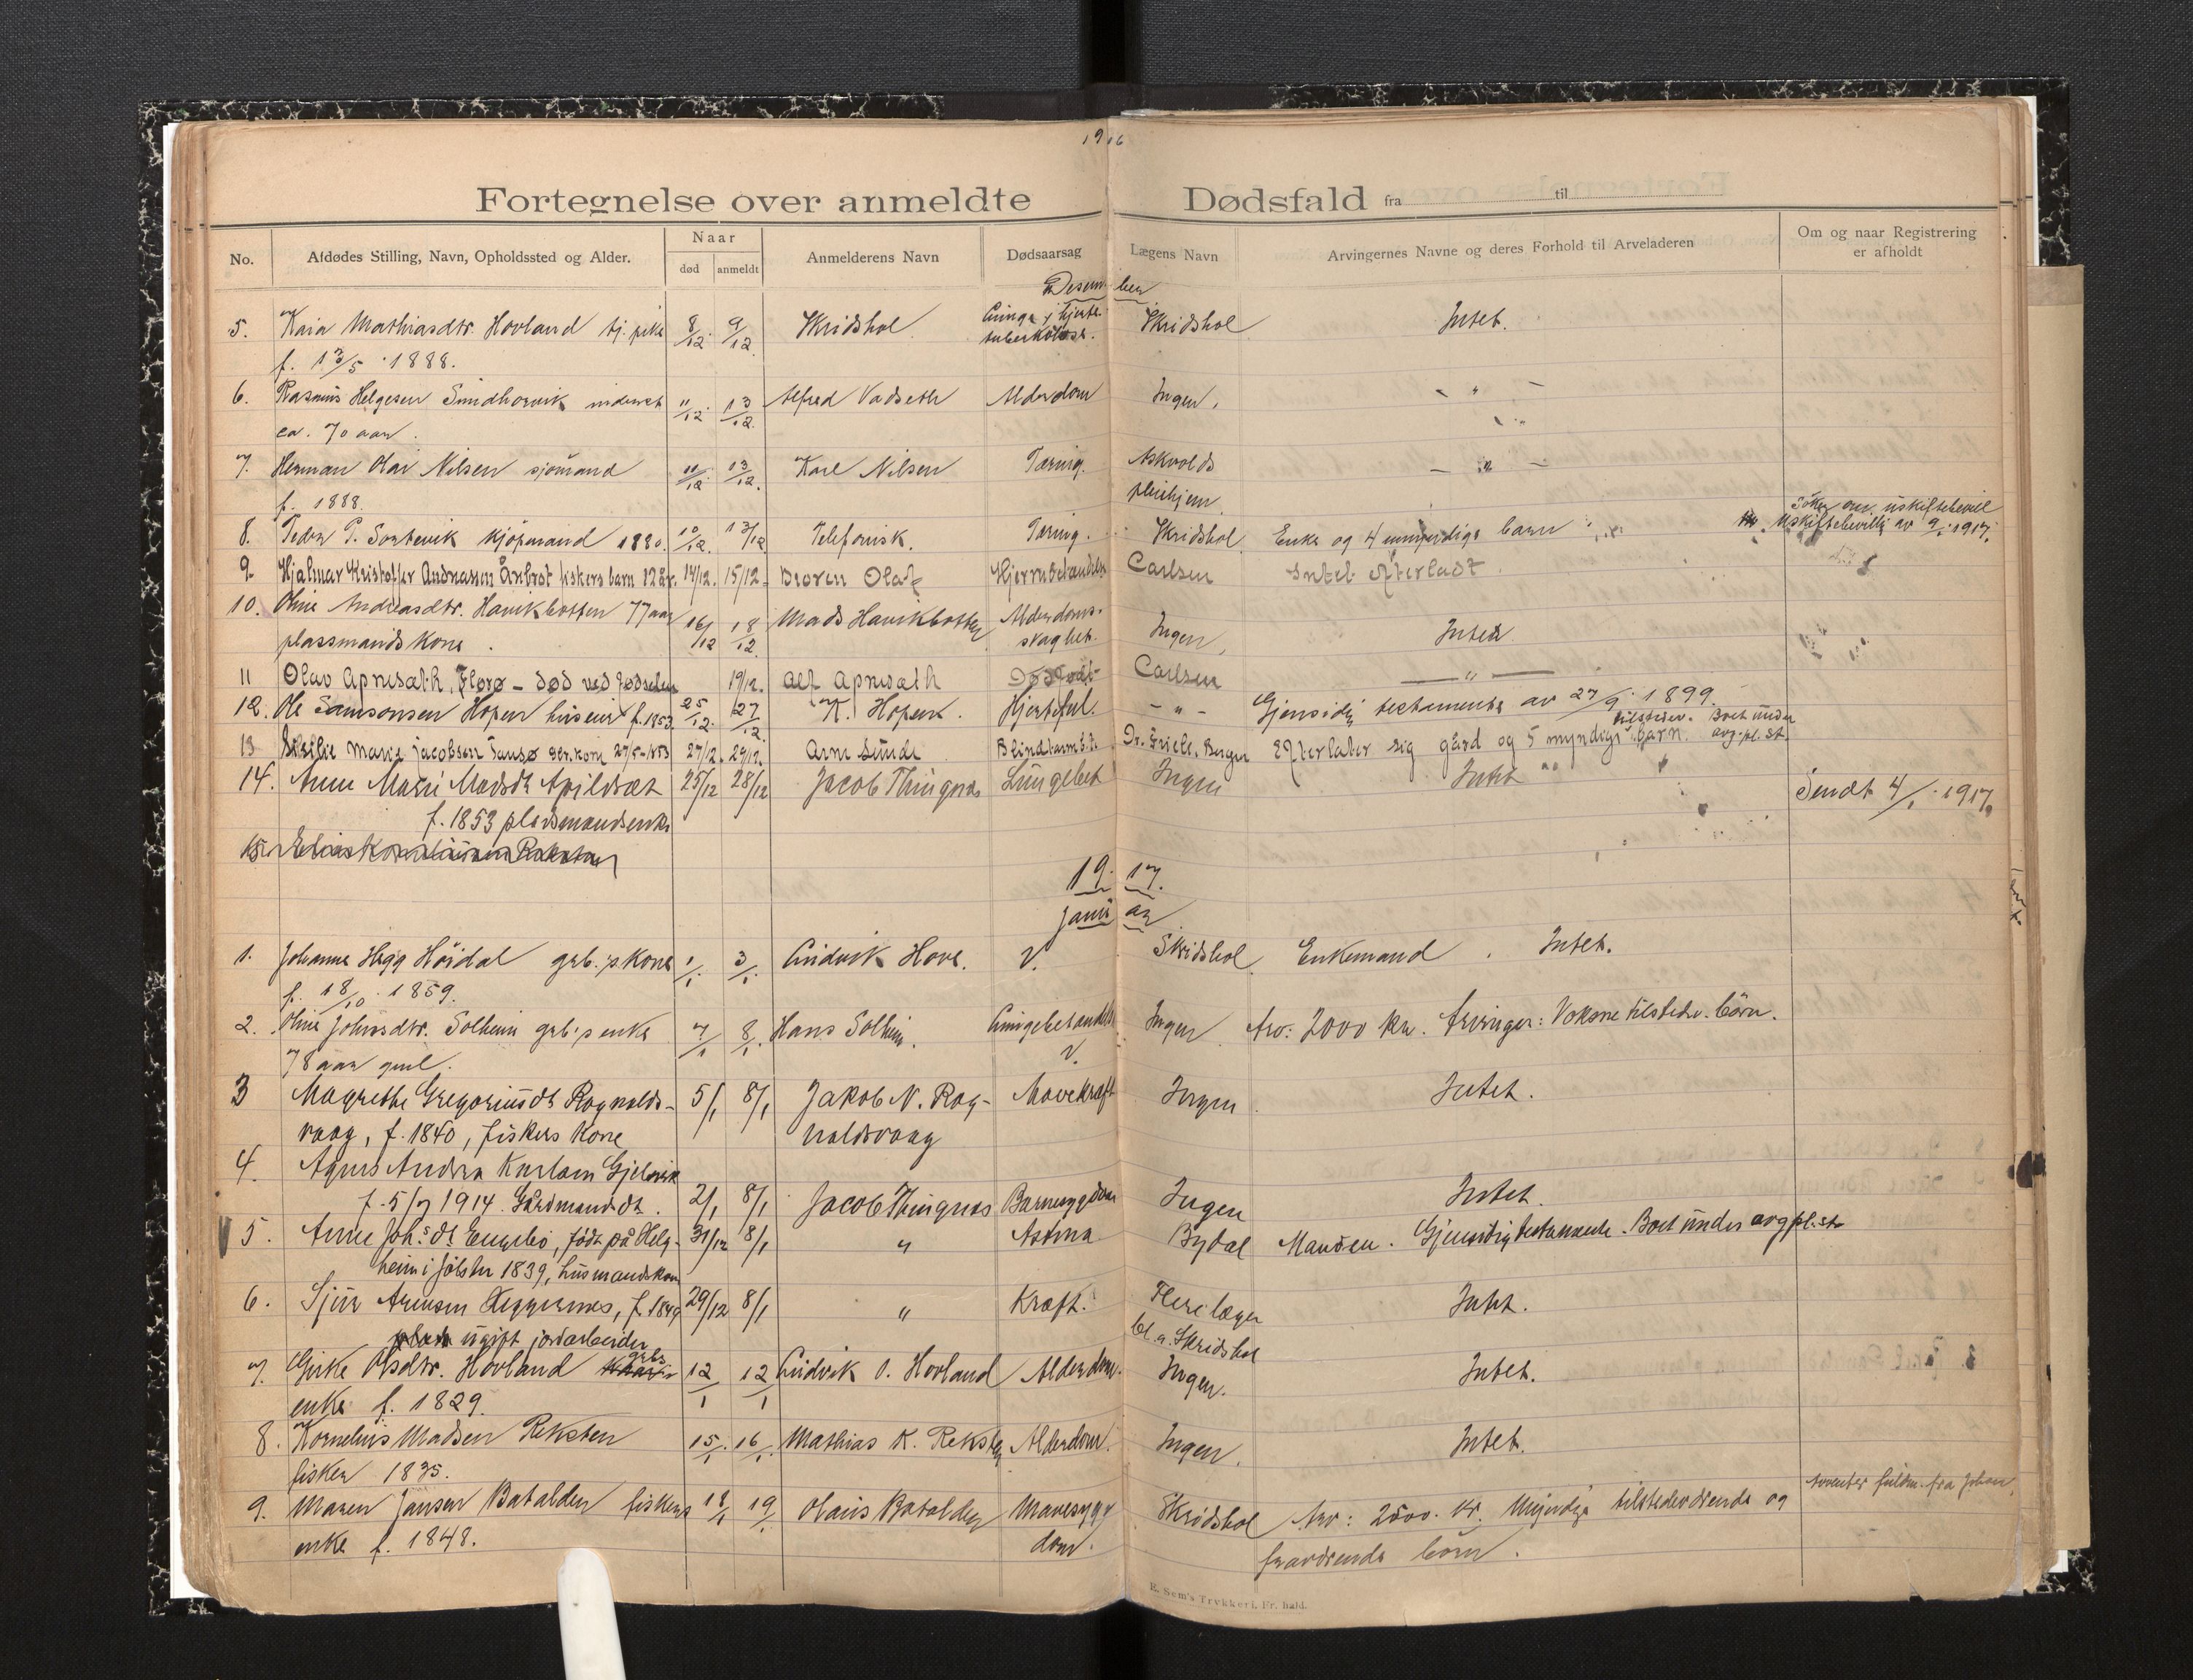 1916
Fortegnelse over anmeldte Dødsfald fra til
No. Afdødes Stilling, Navn, Opholdssted og Alder. Naar død anmeldt Anmelderens Navn Dødsaarsag Lægens Navn Arvingernes Navne og deres Forhold til Arveladeren Om og naar Registrering er afholdt
Desember
5. Kaia Mathiasdtr. Hovland tj. pike 8/12. 9/12. Skridshol Lunge & hjerte Skridshol Intet.
f. 13/5 1888. tuberkulose.
6. Rasmus Helgesen inderst 11/12. 13/12. Alfred Vadseth Alderdom Ingen. - " -
ca. 70 aar.
7. Herman Olai Nilsen sjømand 11/12. 13/12. Karl Nilsen Tæring. Askvolds - " -
f. 1888. pleiehjem
Søker om uskiftebevill
8. Peder P. kjøpmand 1880. 10/12. 13/12 Telefonisk. Tæring. Skridshol Enke og 4 umyndige barn Uskiftebevilling av 9/1. 1917.
9. Hjalmar Kristoffer Andreassen Årebrot fiskers barn 12 år. 14/12. 15/12. Broren Olaf Hjernebetændelse Carlsen Intet efterladt.
10. Oline Andreasdtr. Havikbotten 77 aar 16/12 18/12. Mads Havikbotten Alderdoms- Ingen, Intet
plassmands kone. svaghet.
11 Olav Apneseth, Florø - død ved fødselen 19/12. Alf Apneseth Dødfødt Carlsen - " -
12. Ole Samsonsen Hopen huseier f. 1853. 25/12. 27/12. K. Hopen. Hjertefeil. - " - Gjensidig testamente av 27/9. 1899.
tilsteder. Boet under
13 Marie Jacobsen Tansø 27/5-1853 27/12. 29/12. Arne Sunde Blindtarmb. Dr. Grieb, Bergen Efterlater sig gård og 5 myndige barn. avg.pl. st.
14. Anne Marie Madsdt Apildset 25/12 28/12 Jacob Thingnes Lungebet Ingen Intet Sendt 4/1. 1917.
f. 1853 pladsmandsenke
15.
1917.
Januar
1. Johanne Hegg Høidal grb.'s kone 1/1. 3/1. Ludvik Hove. ?. Skridshol Enkemand. Intet.
f. 18/10. 1859.
2. Oline Johnsdtr. Solheim grb.'s enke 7/1 8/1. Hans Solheim. Lungebetændelse Ingen Arv: 2000 kr. Arvinger: Voksne tilstedev. børn.
78 aar gml. ?.
3 Magrethe Gregoriusdt Rognalds- 5/1 8/1 Jakob N. Rog- Mavekræft Ingen Intet.
vaag, f. 1840, fiskers kone naldsvaag
4. Agnes Andrea Karlsen Gjelsvik
f. 5/7 1914. Gårdmandsdt. 2/1 8/1 Jacob Thingnes Barnesygdom Ingen Intet.
5. Anne Joh.sdt Engebø, født på Helg- 31/12 8/1 " Astma Bydal Manden. Gjensidig testamente. Boet under avg pl. st.
heim i Jølster 1839, husmandskone
6. Sjur Arensen f. 1849 29/12 8/1 " Kræft. Flere læger Intet.
ugift jordarbeider bl. a. Skridshol
7. Olsdtr. Hovland grbs 12/1 12/1 Ludvik O. Hovland Alderdom. Ingen. Intet.
enke f. 1829.
8. Kornelius Madsen Reksten 15/1. 16/1. Mathias K. Reksten Alderdom. Ingen. Intet.
fisker 1835.
9. Maren Jansen Batalden fiskers 18/1 19/1. Olaus Batalden Mavesyg- Skridshol Arv: 2500. kr. Myndige tilstedeværende og Avventer fuldm. fra Johan
enke f. 1848. dom. fraværende børn.
E. Sem's Trykkeri, Fr. hald.